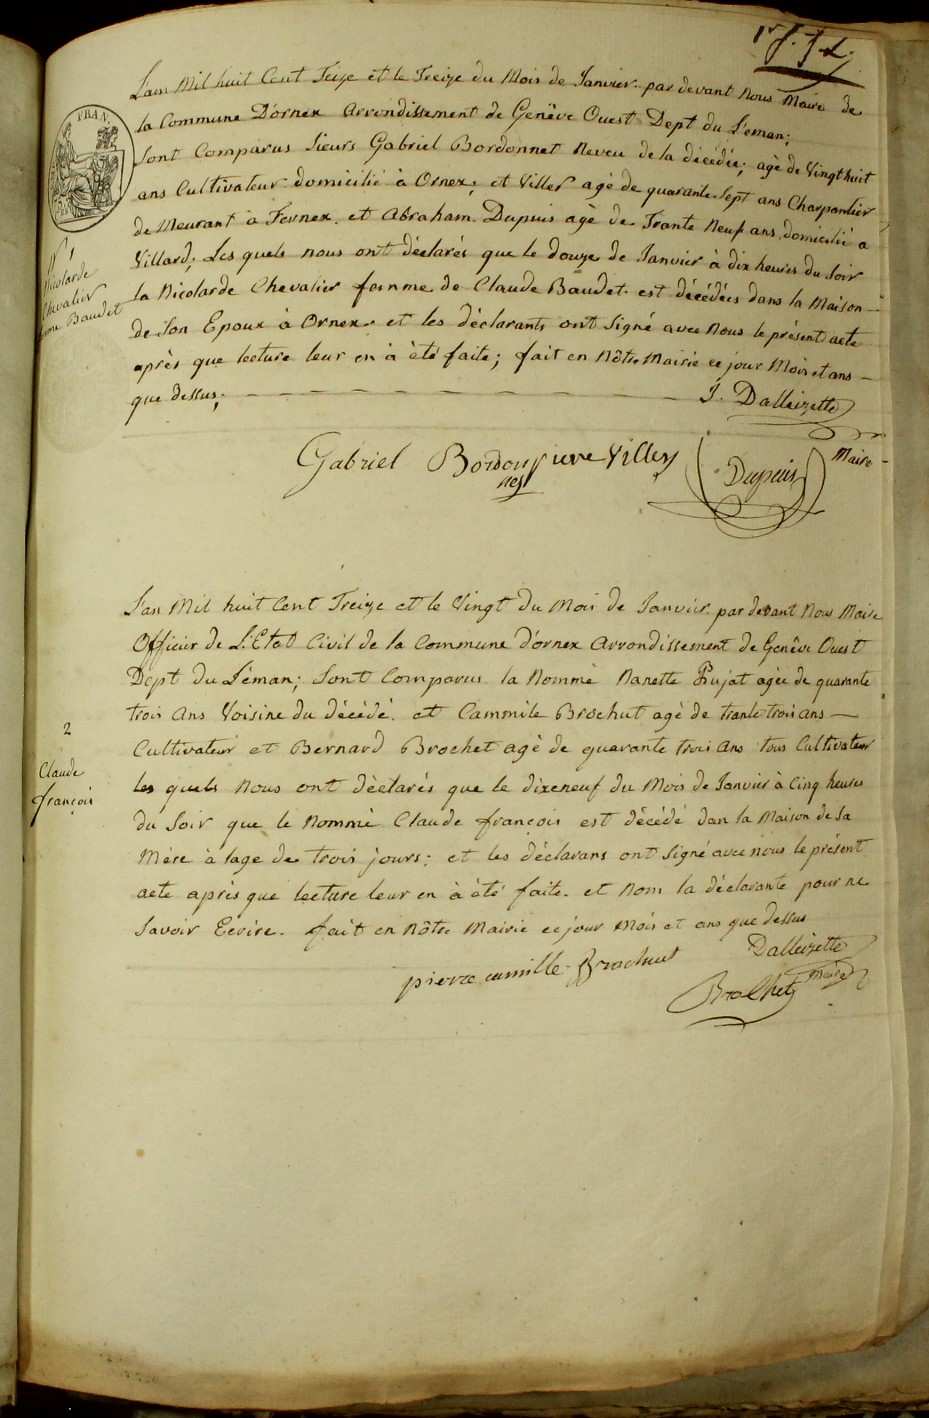 1er f. J.D.
FRAN.
Lan Mil huit Cent Treize et le Treize du Mois de Janvier par devant Nous Maire de
la Commune D'ornex Arrondissement de Genêve Ouest Dept du Léman;
Sont Comparus Sieurs Gabriel Bordonnet Neveu de la décédée; agé de Vingt huit
ans Cultivateur domicilié à Ornex; et Viller agé de quarante Sept ans Charpantier
demeurant à Fernex. et Abraham Dupuis agé de Trante Neuf ans domicilié a
Villard; Les quels nous ont déclarés que le douze de Janvier à dix heures du Soir
la Nicolarde Chevalier femme de Claude Baudet est décédées dans la Maison
de Son Epoux à Ornex. et les déclarants ont Signé avec Nous le présent acte
après que lecture leur en à été faite; fait en Nôtre Mairie ce jour Mois et ans
que dessus;
1
Nicolarde
Chevalier
femme Baudet
J. Dalleizette
Maire
Gabriel Bordon
nes
pierre Viller
Dupuis
2
Claude
françois
Lan Mil huit Cent Treize et le Vingt du Mois de Janvier par devant Nous Maire
Officier de L'Etat Civil de la Commune d'ornex Arrondissement de Genêve Ouest
Dépt du Léman; Sont Comparus la Nommé Nanette Pujat agée de quarante
trois Ans Voisine du décédé. et Cammile Brochut agé de trante trois ans
Cultivateur et Bernard Brochet agé de quarante trois Ans tous Cultivateur
les quels Nous ont déclarés que le dixeneuf du Mois de Janvier à Cinq heures
du Soir que le Nommé Claude françois est décédé dan la Maison de Sa
Mère à lage de trois jours; et les déclarans ont Signé avec nous le présent
acte après que lecture leur en à été faite. et Nom la déclarante pour ne
Savoir Ecrire. fait en Nôtre Mairie ce jour Mois et ans que dessus
pierre camille Brachut
Dalleizette
Maire
Brochet